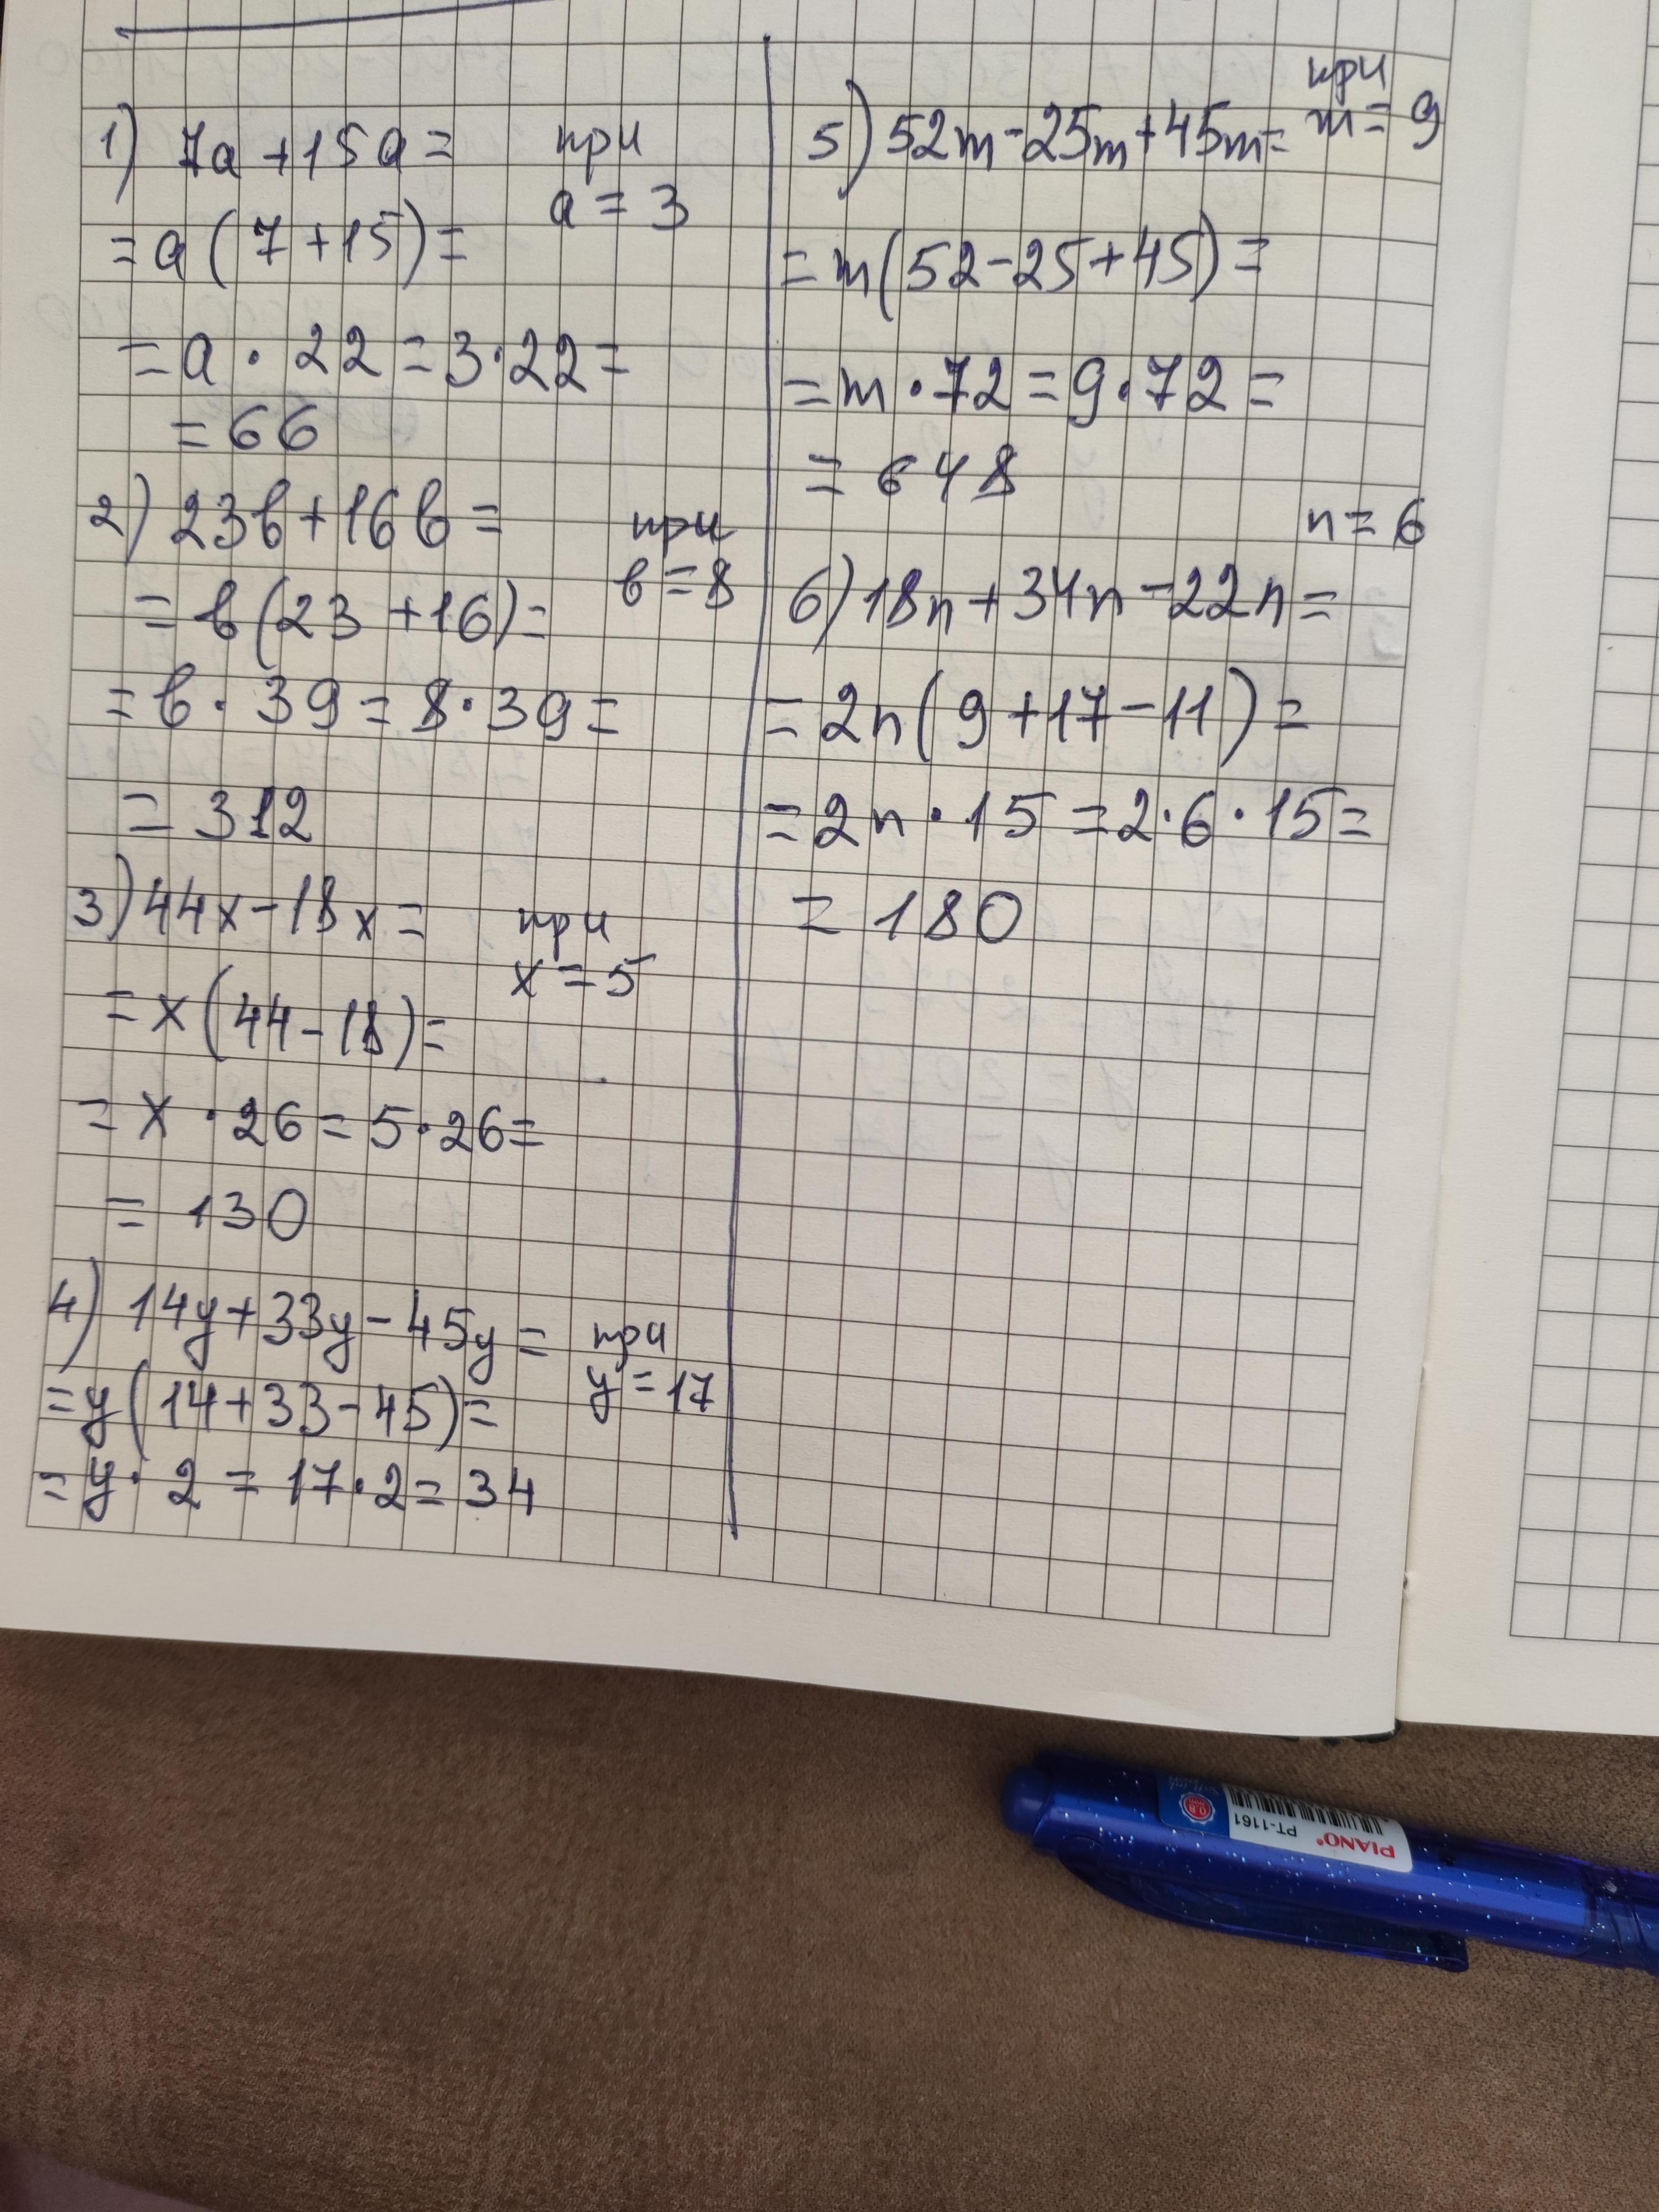 1) 7a + 15a = при
a = 3
= a (7 + 15) =
= a · 22 = 3 · 22 =
= 66
2) 23в + 16в = при
в = 8
= в (23 + 16) =
= в · 39 = 8 · 39 =
= 312
3) 44x - 18x = при
x = 5
= x (44 - 18) =
= x · 26 = 5 · 26 =
= 130
4) 14y + 33y - 45y = при
y = 17
= y (14 + 33 - 45) =
= y · 2 = 17 · 2 = 34
при
5) 52m - 25m + 45m = m = 9
= m (52 - 25 + 45) =
= m · 72 = 9 · 72 =
= 648
n = 6
6) 18n + 34n - 22n =
= 2n (9 + 17 - 11) =
= 2n · 15 = 2 · 6 · 15 =
= 180
PIANO
PT-1161